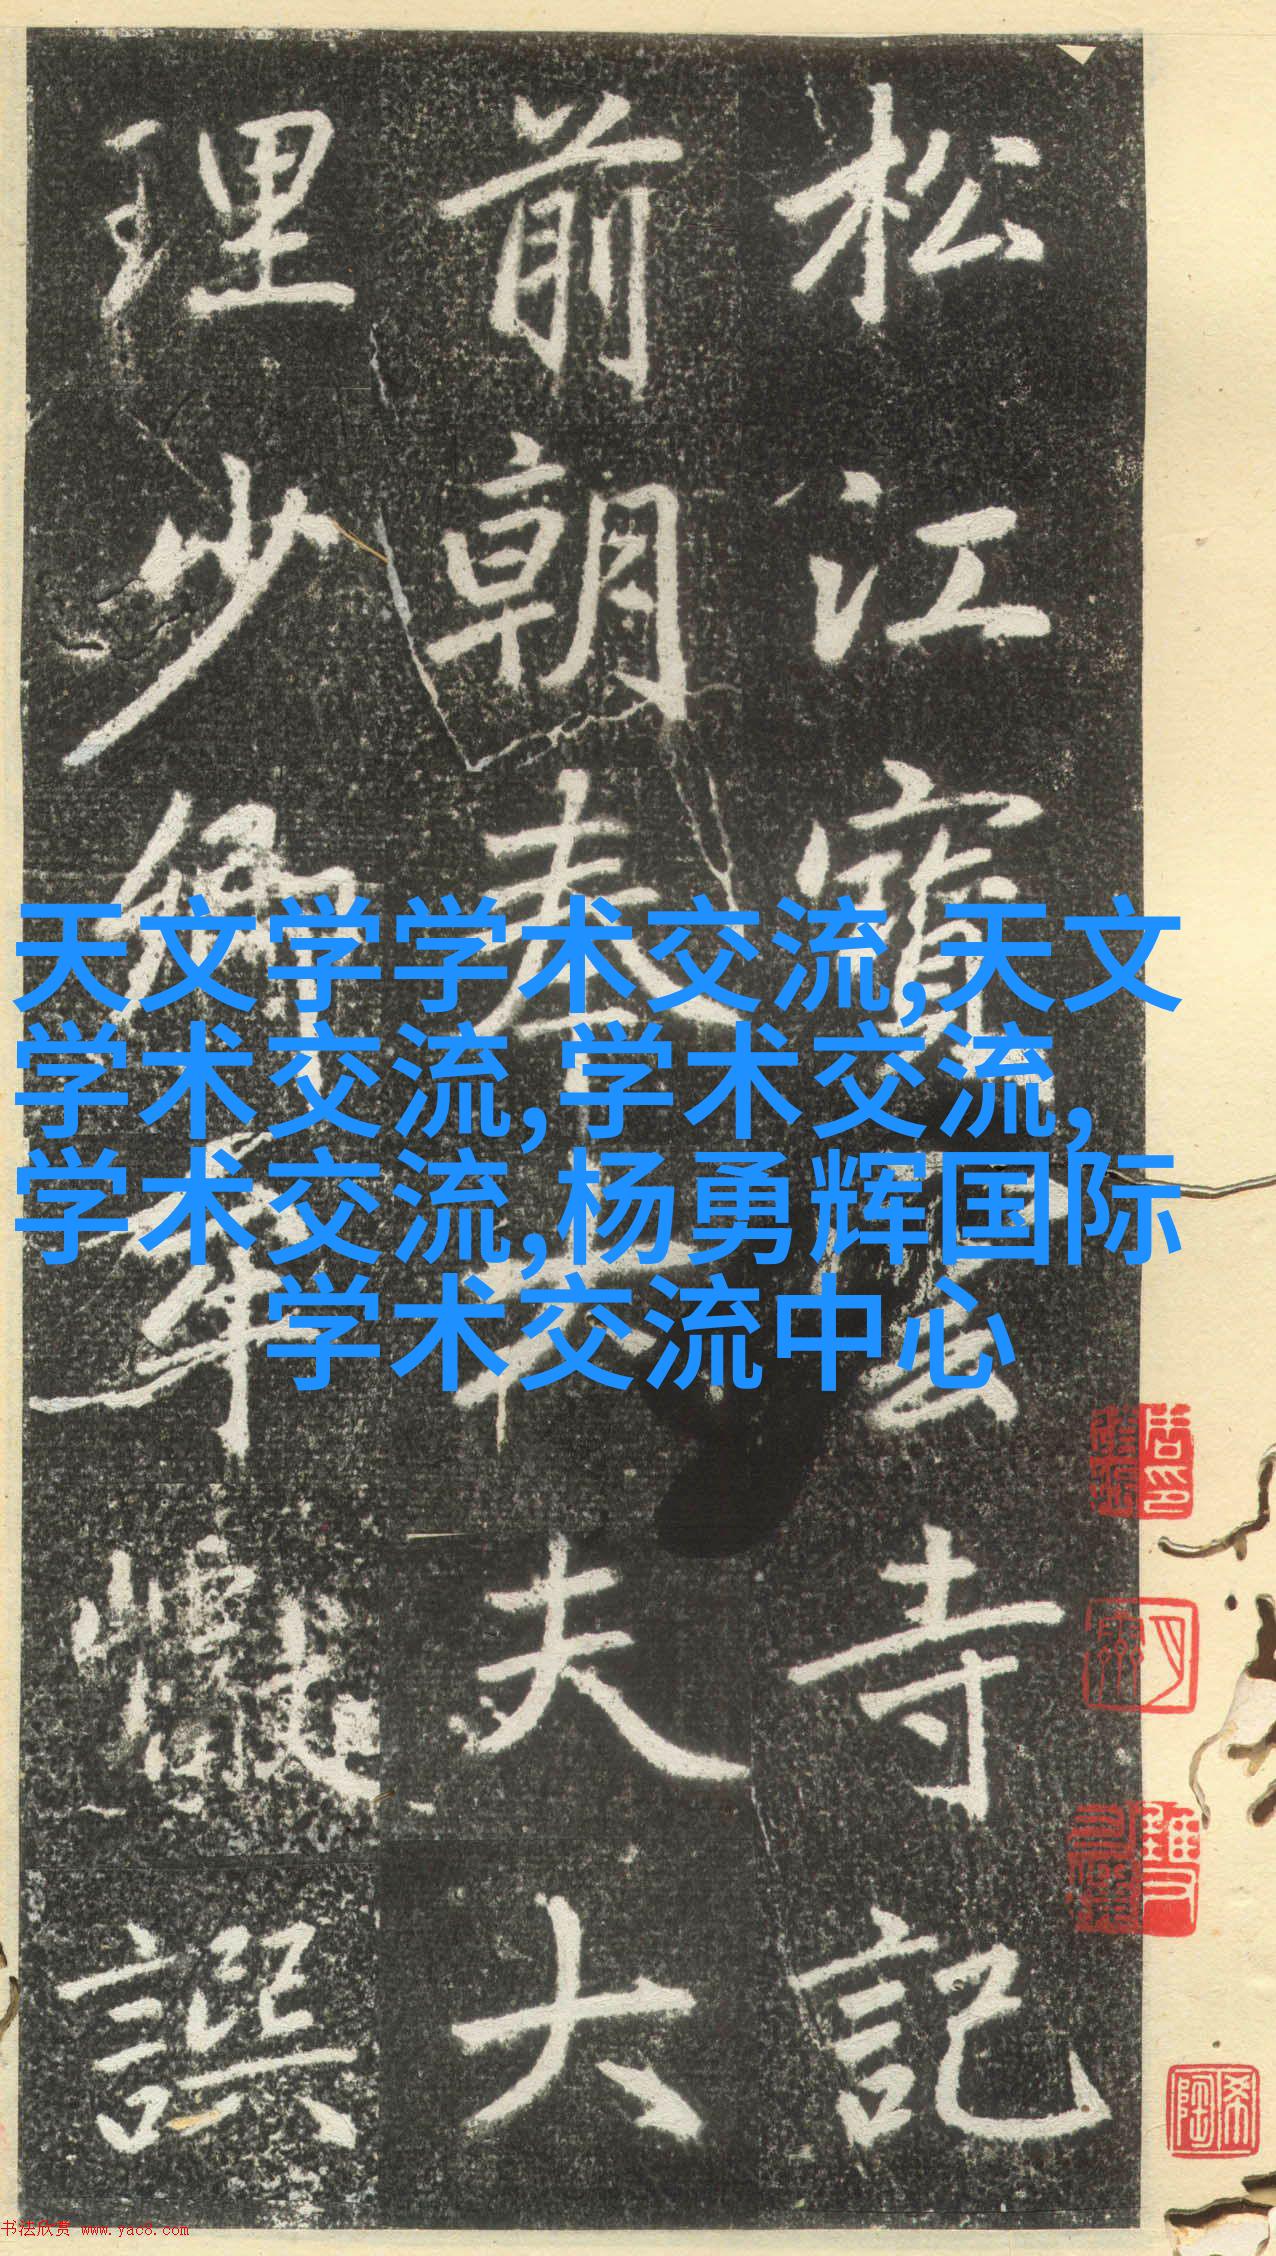 松江寶雲寺記
前朝奉大夫大
理少卿牟巘譔
天文学学术交流,天文
学术交流,学术交流,
学术交流,杨勇辉国际
学术交流中心
希陶
书法欣赏 www.yac8.com